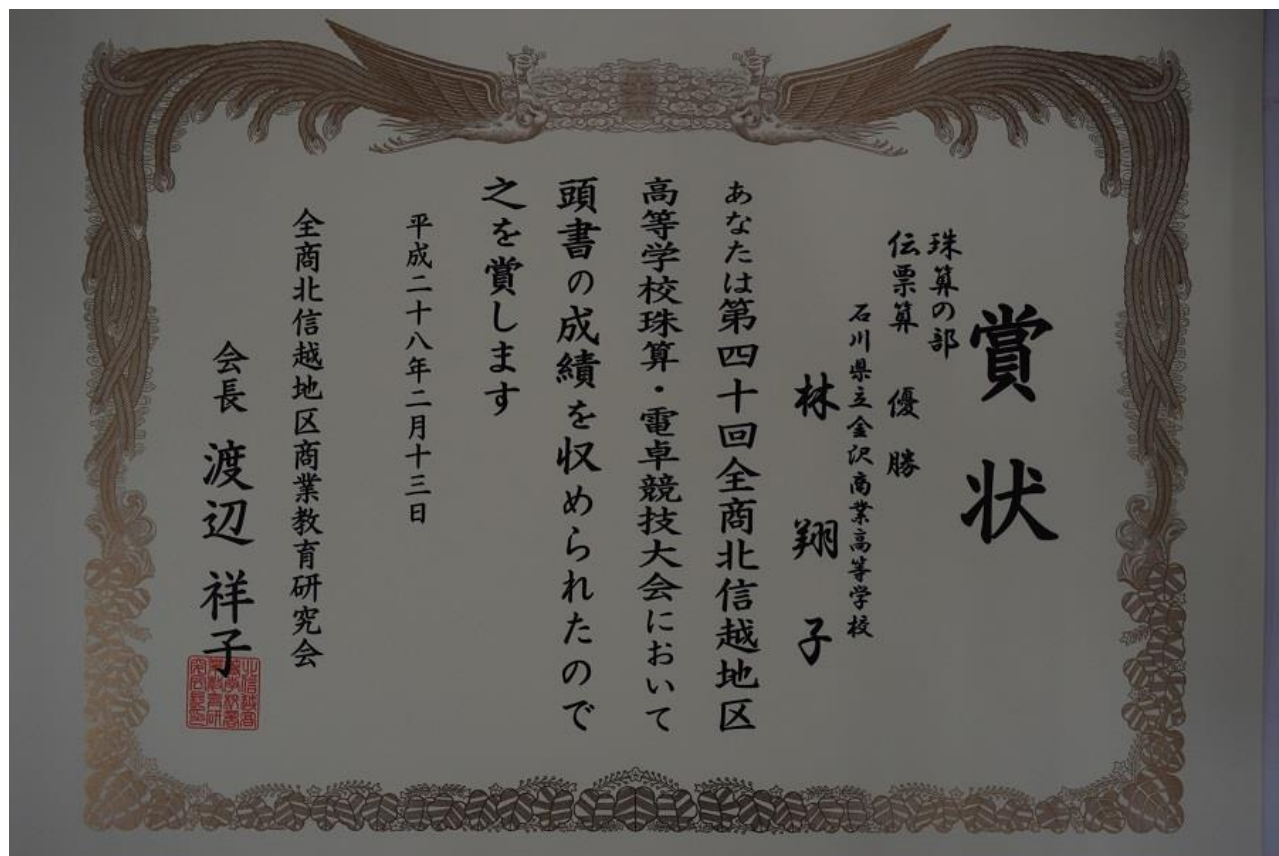 賞状
珠算の部
伝票算 優勝
石川県立金沢商業高等学校
林 翔子
あなたは第四十回全商北信越地区
高等学校珠算・電卓競技大会において
頭書の成績を収められたので
之を賞します
平成二十八年二月十三日
全商北信越地区商業教育研究会
会長 渡辺 祥子